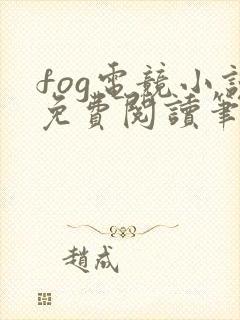 fog電競小
免費閱讀筆
趙成